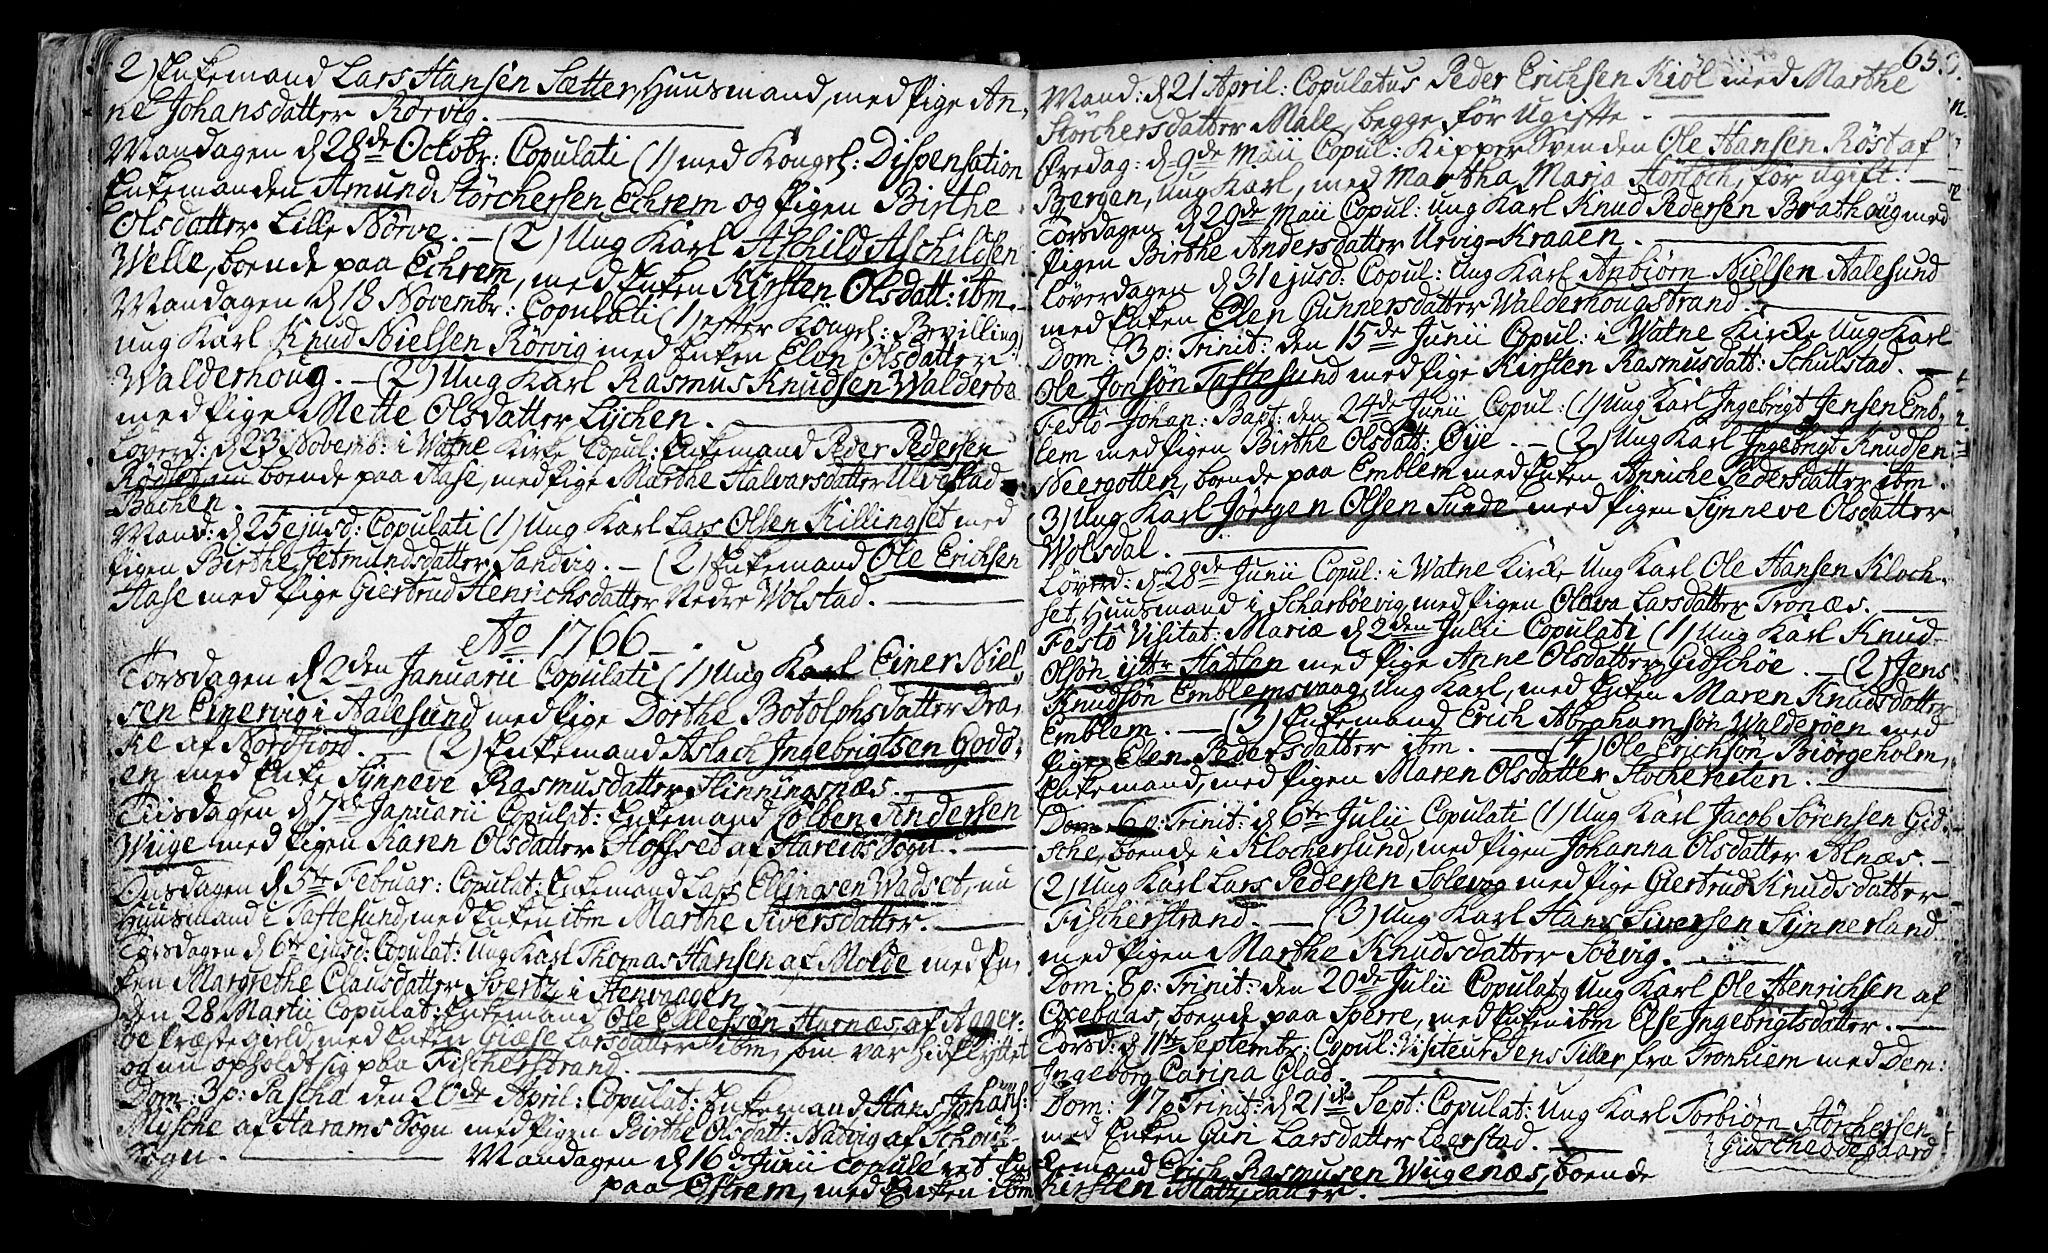 2) Enkemand Lars Hansen Sætter, Huusmand, med Pige An-
ne Johansdatter Rørvig.
Mandagen d 28de Octobr: Copulati (1) med Kongel: Dispensation
Enkemanden Amund Størchersen Echrem og Pigen Birthe
Olsdatter Lille Nørve. - (2) Ung Karl Aschild Aschildsen
Welle, boende paa Echrem, med Enken Kirsten Olsdatt: ibm.
Mandagen d 18 Novembr: Copulati (1) efter Kongel: Bevilling
ung Karl Knud Nielsen Rørvig med Enken Elen Olsdatter
Walderhoug. - (2) Ung Karl Rasmus Knudsen Walderøe
med Pige Mette Olsdatter Lychen.
Løverd: d 23 Novemb: i Watne Kirke Copul: Enkemand Peder Pedersen
Rødset, nu boende paa Aase, med Pige Marthe Halvarsdatter Ulvestad
Bachen.
Mand: d 25 ejusd: Copulati (1) Ung Karl Lars Olsen Killingset med
Pigen Birthe Jetmundsdatter Sandvig. - (2) Enkemand Ole Erichsen
Aase med Pige Giertrud Henrichsdatter Nedre Wolstad.
Ao 1766
Torsdagen d 2den Januarii Copulati (1) Ung Karl Einer Niel-
sen Einervig i Aalesund med Pige Dorthe Botolphsdatter Dra-
ke af Nordfiord. - (2) Enkemand Aslach Ingebrigtsen Godø-
en med Enke Synneve Rasmusdatter Flinningsnæs.
Tiisdagen d 7de Januarii Copulat: Enkemand Colben Andersen
Wiige med Pigen Karen Olsdatter Hoffset af Hareids Sogn.
Onsdagen d 5te Februar: Copulat: Enkemand Lars Ellingsen Wadset, nu
Huusmand i Taftesund med Enken ibm Marthe Siversdatter.
Torsdagen d 6te ejusd: Copulat: Ung Karl Thomas Hansen af Molde med En-
ken Margrethe Clausdatter Svertz i Stenvaagen.
den 28 Martii Copulat: Enkemand Ole Ellefsøn Harnæs af Agger-
øe Præstegield, med Enken Giæse Larsdatter ibm, som var hidflyttet
og nu opholdt sig paa Fischerstrand.
Dom: 3 p: Pascha den 20de April: Copulat: Enkemand Hans Johans:
Mysche af Harams Sogn med Pigen Birthe Olsdatt: Nadvig af Schoue-
Sogn. Mandagen d 16de Junii copuleret En-
paa Echrem, med Enken ibm
65.
Mand: d 21 April: Copulatus Peder Erichsen Kiøl med Marthe
Størchersdatter Male, begge før Ugifte.
Fredag: d 9de Maii Copul: Kipper Svenden Ole Hansen Røst af
Bergen, ung Karl, med Martha Maria Hørloch, før ugift.
Torsdagen d 29de Maii Copul: ung Karl Knud Pedersen Brathoug med
Pigen Birthe Andersdatter Urvig-Kraaen.
Løverdagen d 31 ejusd: Copul: ung Karl Anbiørn Nielsen Aalesund
med Enken Elen Gunnersdatter Walderhougstrand.
Dom: 3 p: Trinit: den 15de Junii Copul: i Watne Kirke Ung Karl
Ole Jonsøn Taftesund med Pige Kirsten Rasmusdatt: Schulstad.
Festo Johan: Bapt: den 24de Junii Copul: (1) Ung Karl Ingebrigt Jensen Emb-
lem med Pigen Birthe Olsdatt: Øye. - (2) Ung Karl Ingebrigt Knudsen
Neergotten, boende paa Emblem med Enken Anniche Pedersdatter ibm.
3) Ung Karl Jørgen Olsen Sunde med Pigen Synneve Olsdatter
Wolsdal.
Løverd: d 28de Junii Copul: i Watne Kirke Ung Karl Ole Hansen Kloch-
set, Huusmand i Scharbøevig med Pigen Oliva Larsdatter Tronæs.
Festo Visitat: Mariæ d 2den Julii Copulati (1) Ung Karl Knud
Olsøn yttr Hatlen med Pige Anne Olsdatter Gidschøe. - (2) Jens
Knudsøn Emblemsvaag, Ung Karl, med Enken Maren Knudsdatter
Emblem. - (3) Enkemand Erich Abrahamsøn Walderøen med
Pigen Elen Pedersdatter ibm. - (4) Ole Erichsøn Biørgeholm,
Enkemand, med Pigen Maren Olsdatter Stochereiten.
Dom: 6 p: Trinit: d 6te Julii Copulati (1) Ung Karl Jacob Sørensen Gid-
sche, boende i Klochersund, med Pigen Johanna Olsdatter Alnæs.
(2) Ung Karl Lars Pedersen Solevog med Pige Giertrud Knudsdatter
Fischerstrand. - (3) Ung Karl Hans Siversen Synnerland
med Pigen Marthe Knudsdatter Søevig.
Dom: 8 p: Trinit: den 20de Julii Copulat: Ung Karl Ole Henrichsen af
Oxebaas, boende paa Sperre, med Enken ibm Else Ingebrigtsdatter.
Torsd: d 11te Septembr: Copul: Visiteur Jens Tiller fra Tronhiem med Dem:
Ingeborg Carina Glad.
Dom: 17 p Trinit: d 21de Sept: Copulat: Ung Karl Torbiørn Størchersen
med Enken Guri Larsdatter Leerstad. Gidscheødegaard
kemand Erich Rasmusen Wiigenæs, boende
Kirsten Madsdatter.